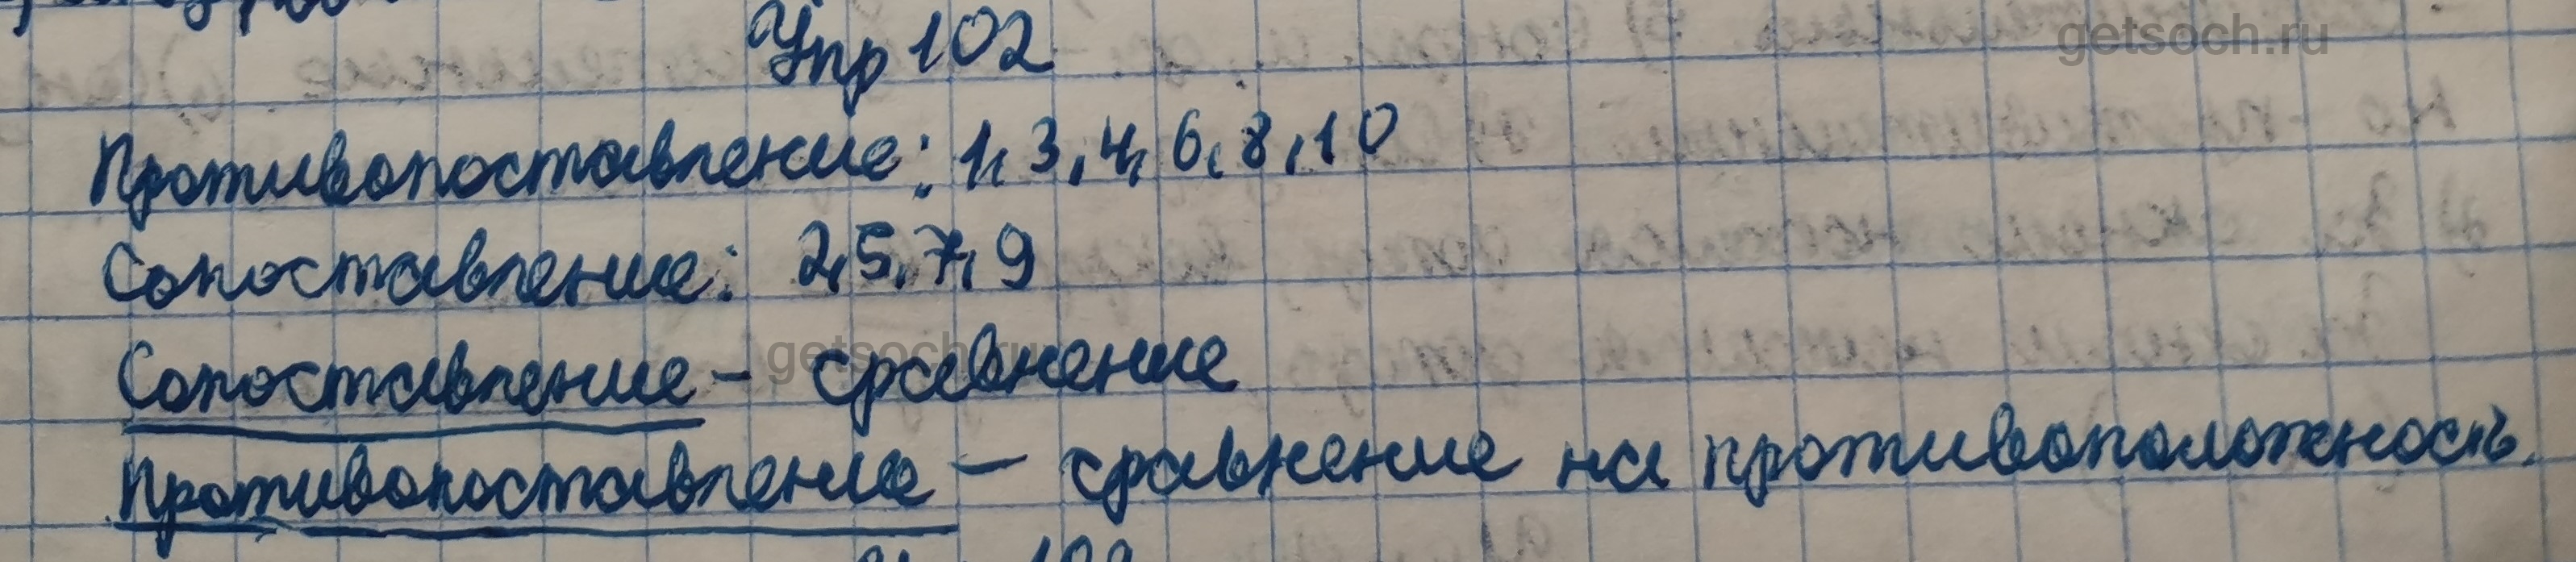 Упр 102
getsoch.ru
Противопоставление: 1, 3, 4, 6, 8, 10
Сопоставление: 2, 5, 7, 9
Сопоставление – сравнение
getsoch.ru
Противопоставление – сравнение на противоположность.